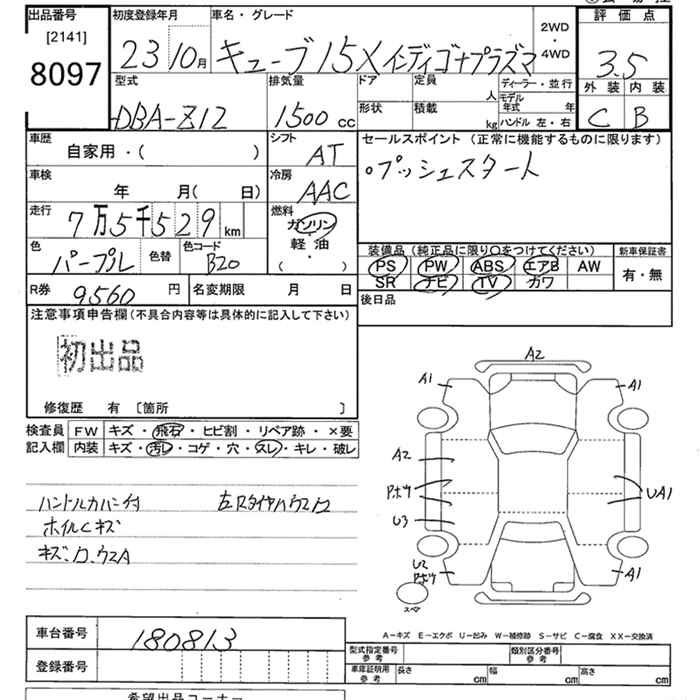 出品番号 初度登録年月 車名・グレード 評価点
[2141]
8097
23 10月 キューブ 15X インディゴ+プラズマ 2WD・4WD 3.5
型式 排気量 ドア 定員 人 ディーラー・並行 外装 内装
DBA-Z12 1500 cc 形状 積載 kg モデル年式 年 ハンドル 左・右 C B
車歴 シフト セールスポイント (正常に機能するものに限ります)
自家用・( ) AT 。プッシュスタート
車検 冷房
年 月( 日) AAC
走行 燃料
7万5千529km ガソリン
軽油
( ・ )
色 色替 色コード 装備品(純正品に限り○をつけてください) 新車保証書
パープル B20 PS PW ABS エアB AW 有・無
SR ナビ TV カワ
R券 9560 円 名変期限 月 日 後日品
注意事項申告欄(不具合内容等は具体的に記入して下さい)
初出品
修復歴 有 [箇所 ]
検査員 FW キズ・飛石・ヒビ割・リペア跡・×要
記入欄 内装 キズ・汚レ・コゲ・穴・スレ・キレ・破レ
ハンドルカバー付
ホイルCキズ
A2
A1
A1
A2
U3
UA1
U2
A1
スペア
A-キズ E-エクボ U-凹み W-補修跡 S-サビ C-腐食 XX-交換済
車台番号 180813
登録番号
型式指定番号 参考 類別区分番号 参考
車庫証明用 参考 長さ cm 幅 cm 高さ cm
希望出品コーナー